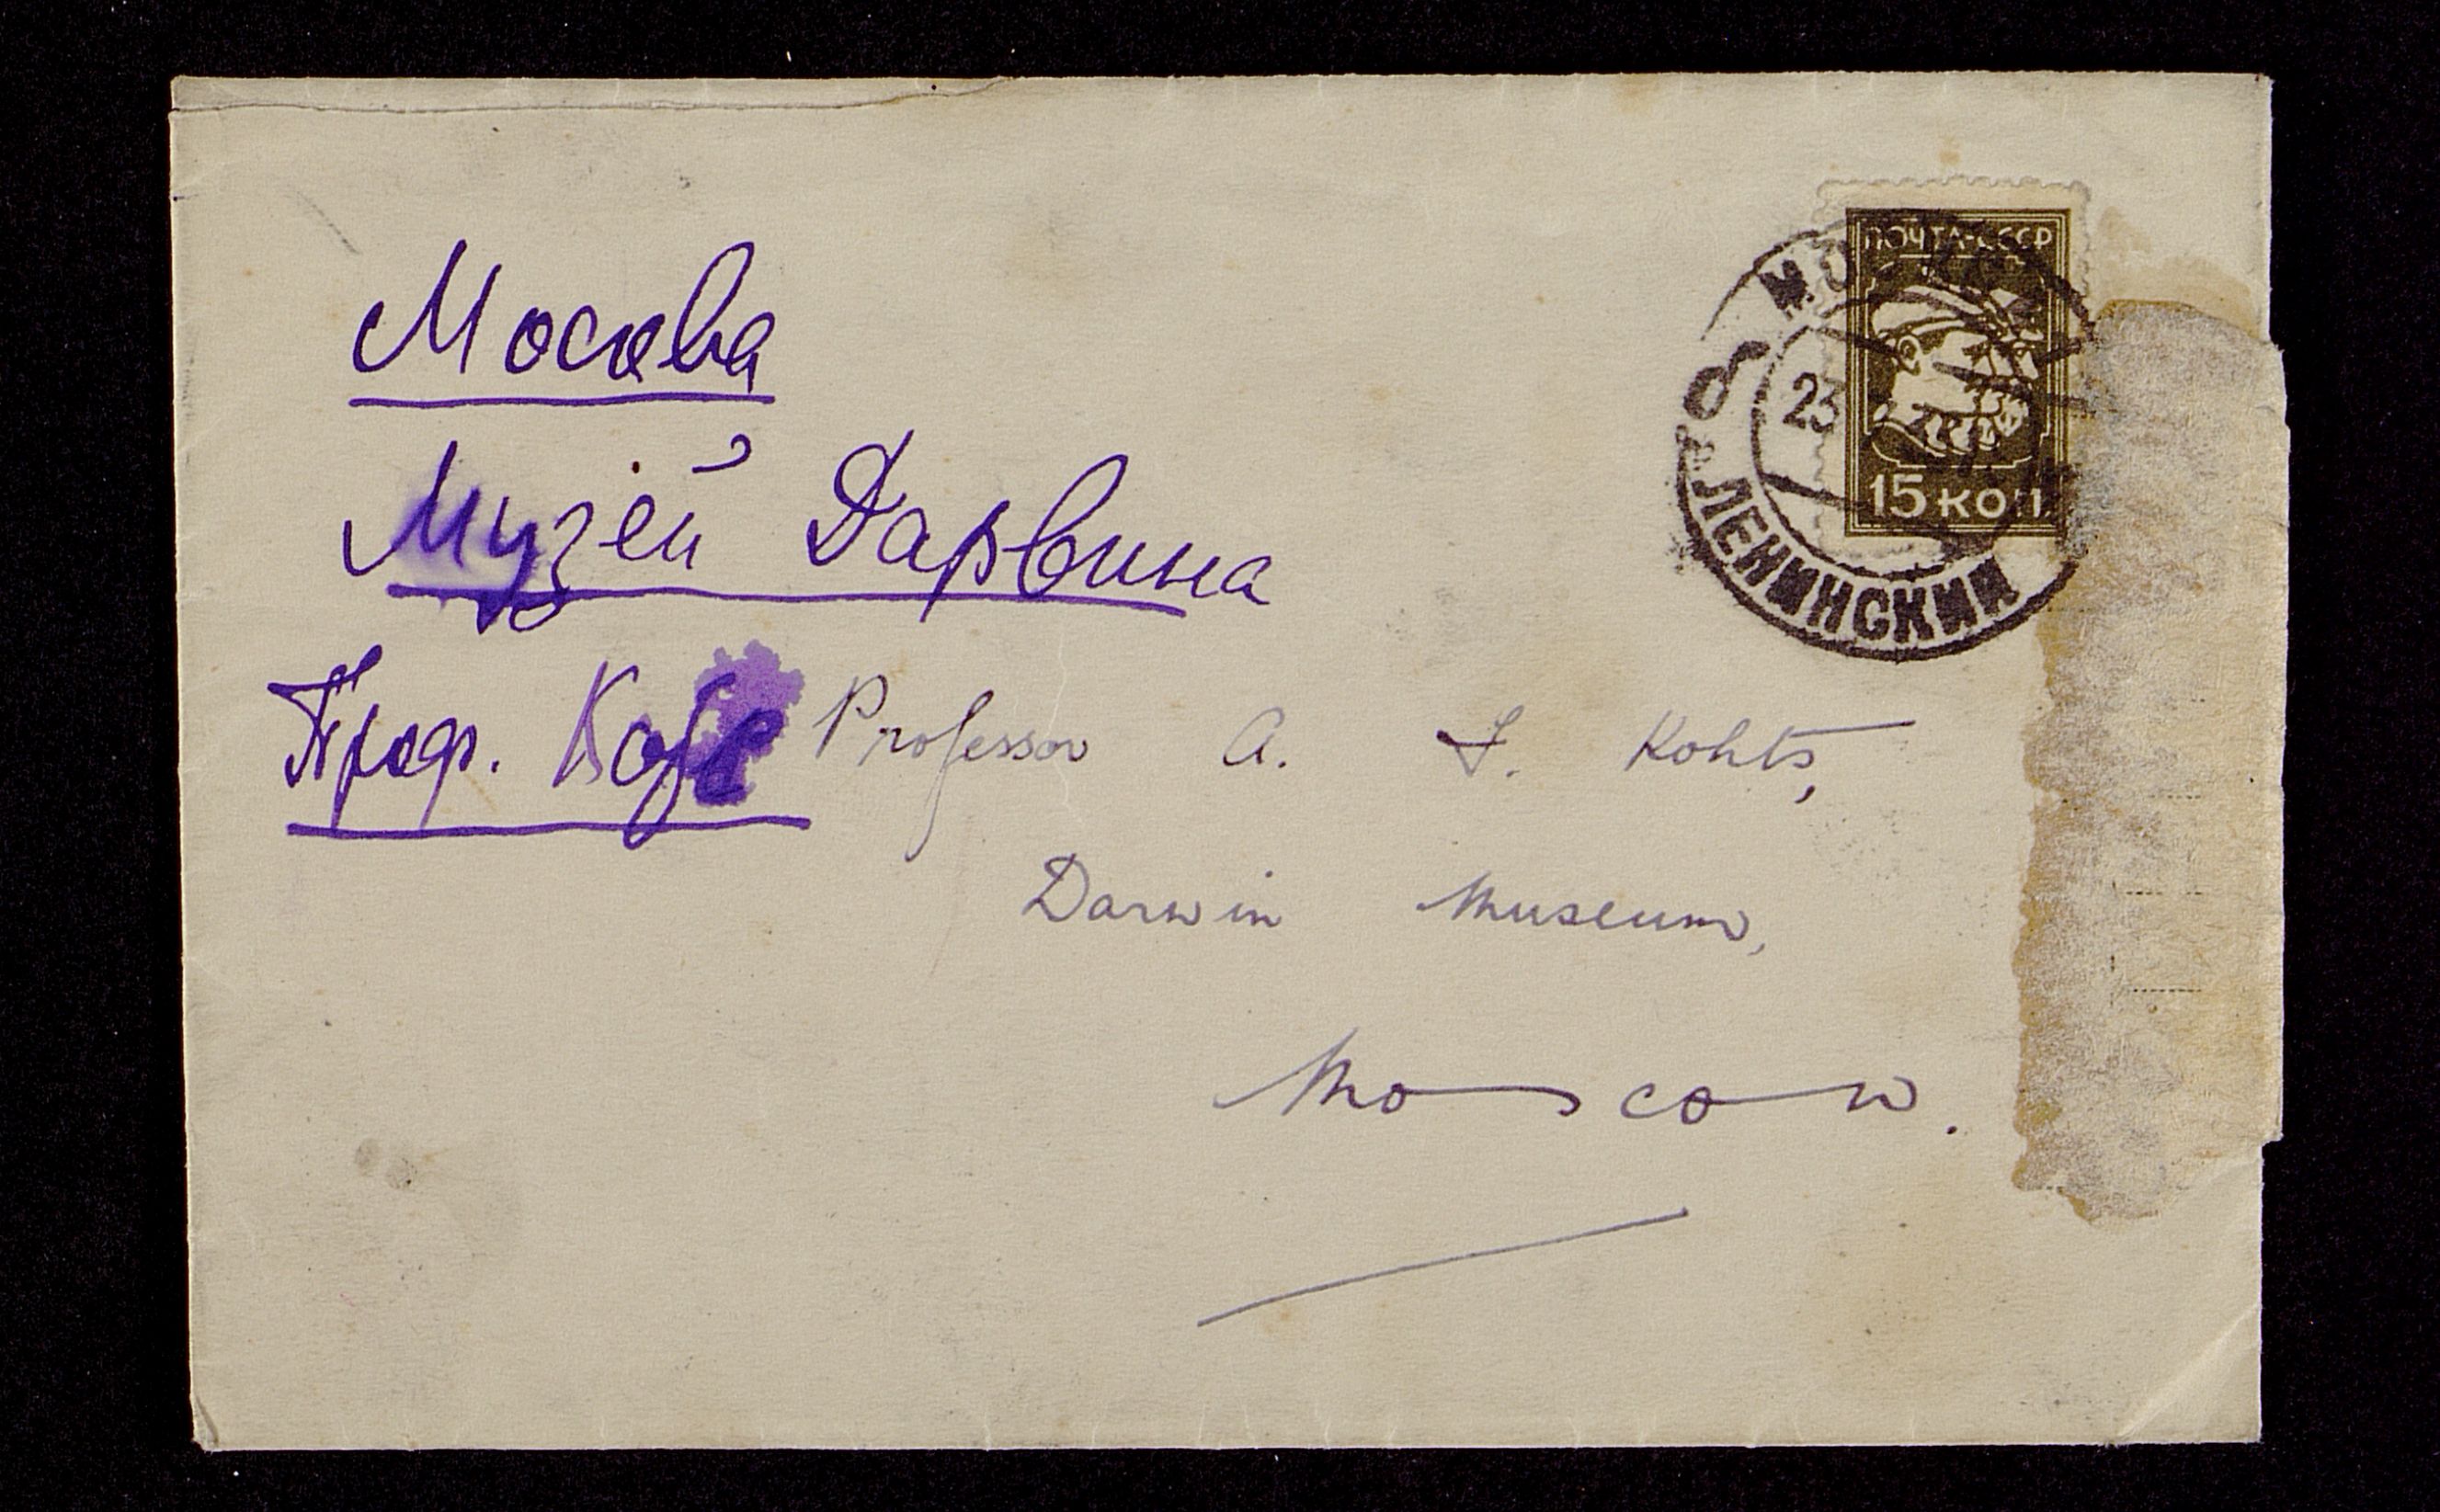 Москва
Музей Дарвина
Проф.
Professor A. F. Kohts,
Darwin Museum,
Moscow.
ПОЧТА-СССР
15 КОП
МОСКВА
23
ЛЕНИНСКИЙ